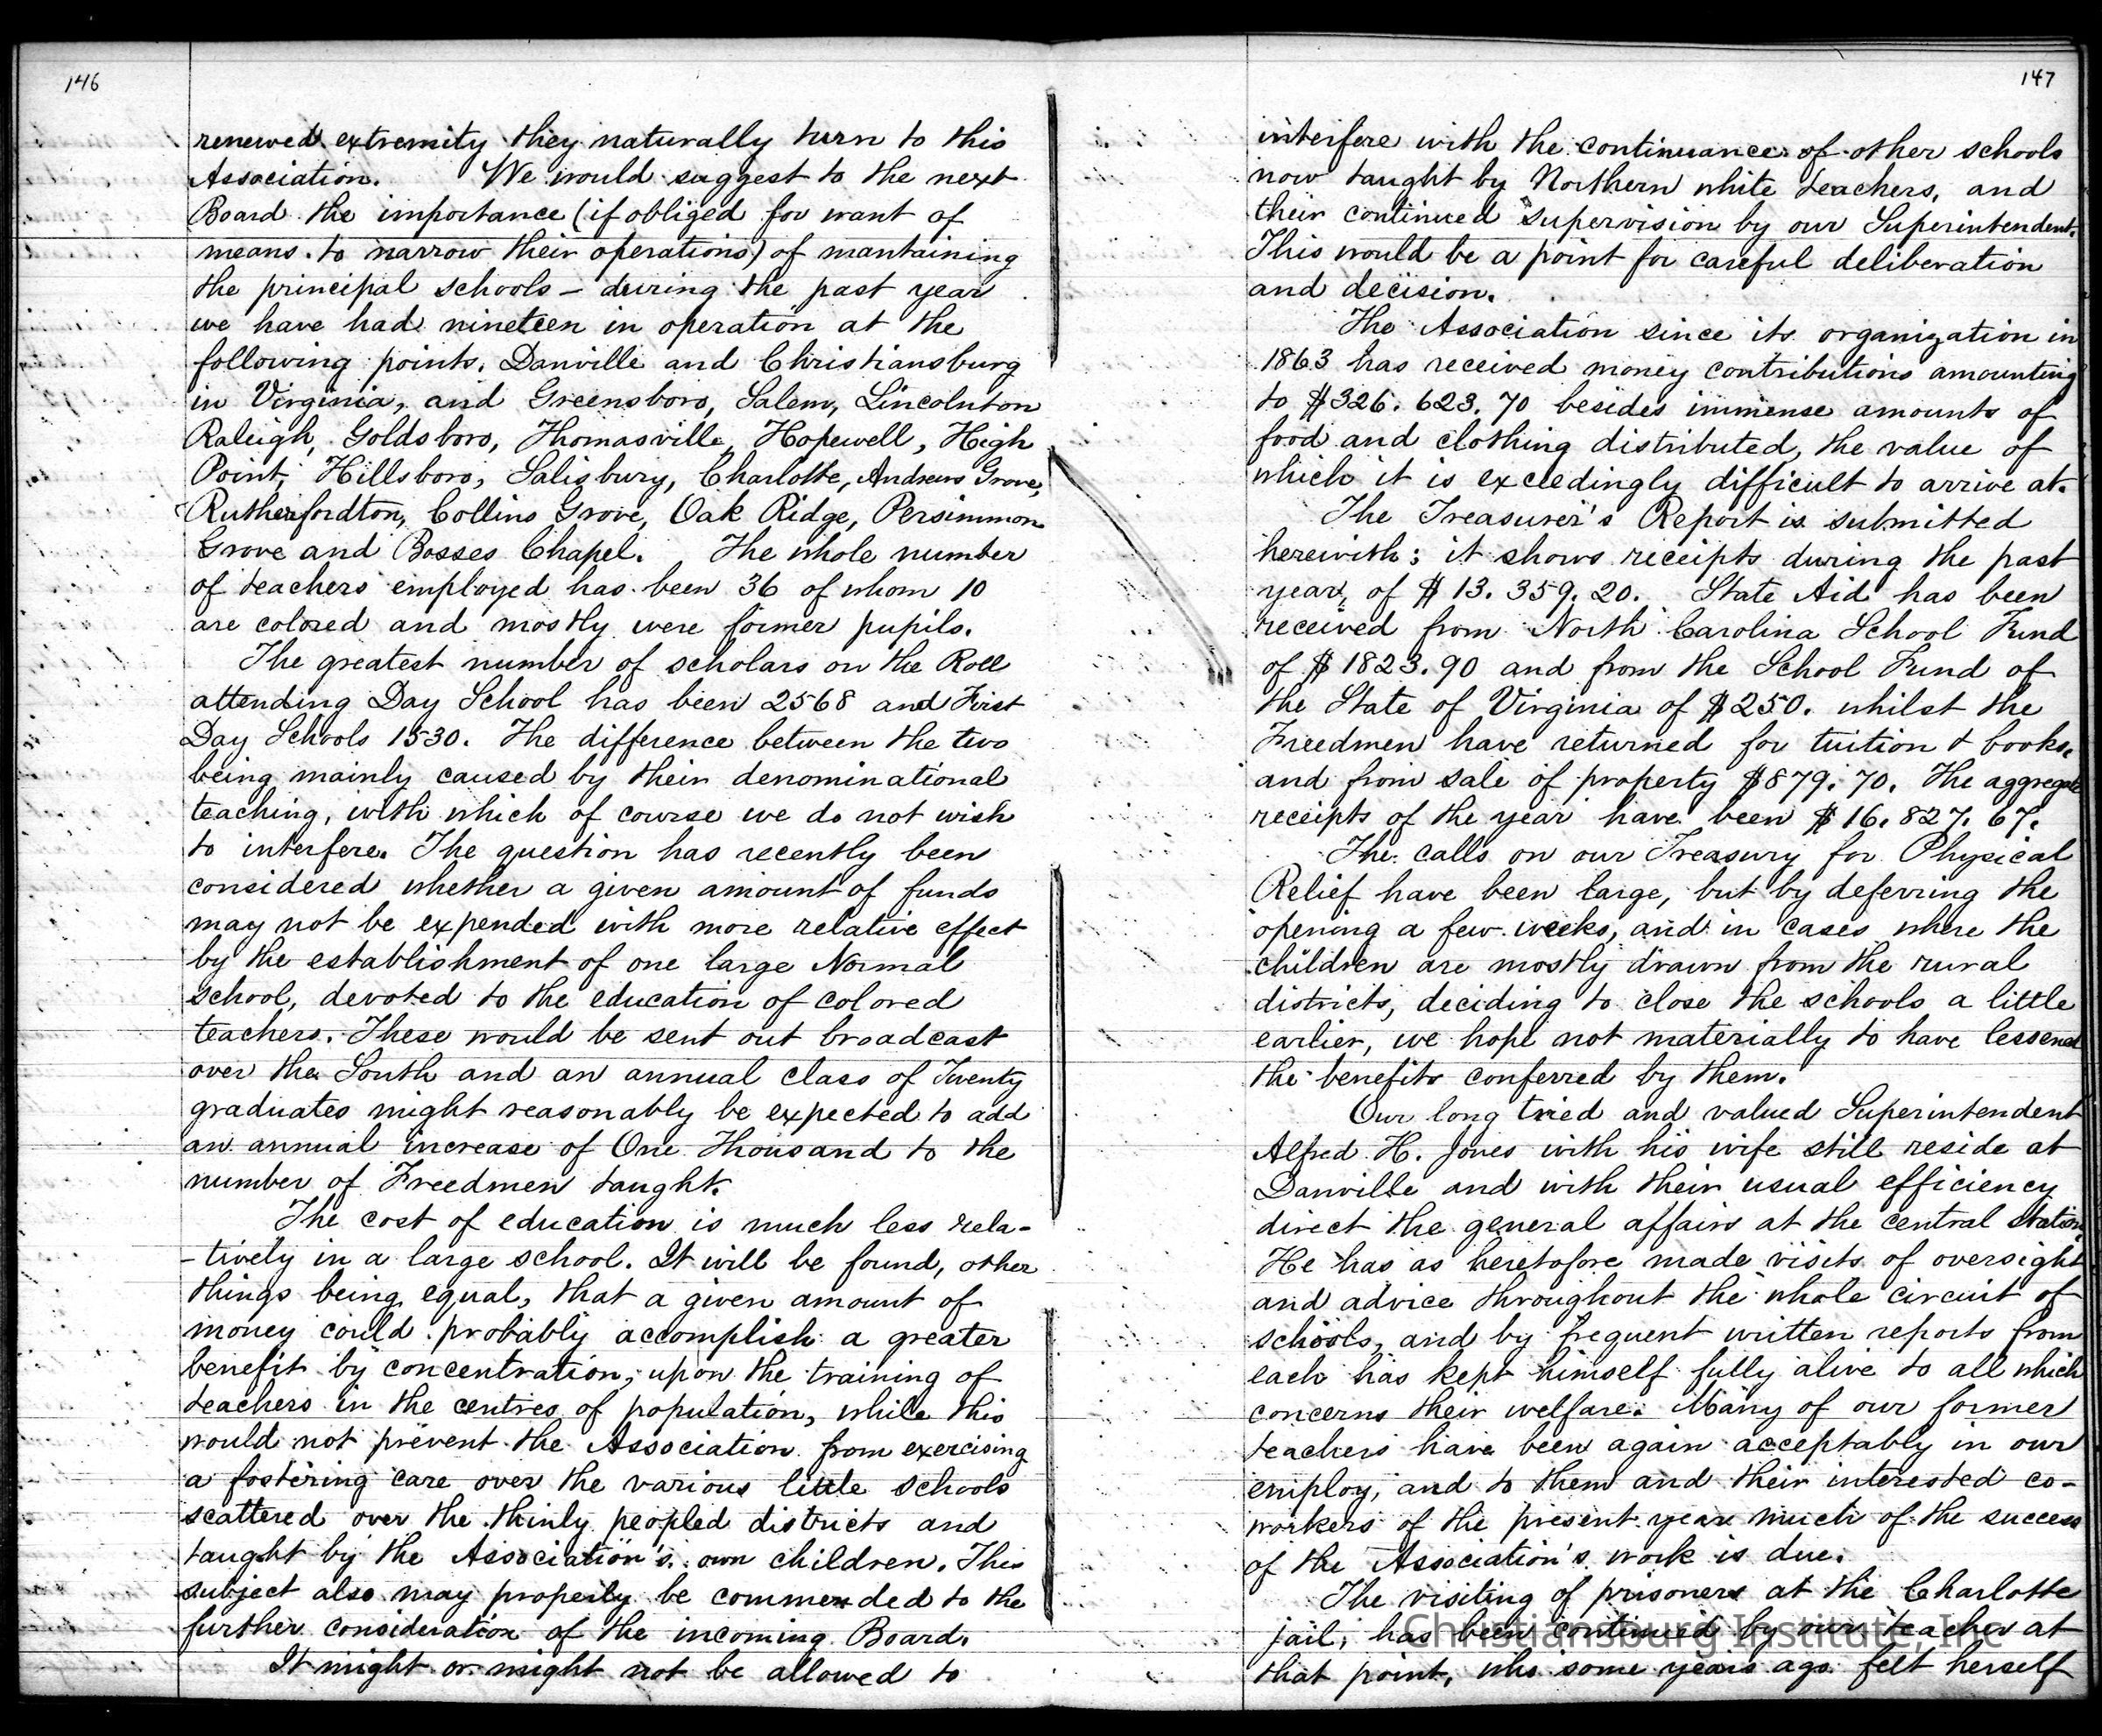 146
renewed extremity they naturally turn to this
Association. We would suggest to the next
Board the importance (if obliged for want of
means to narrow their operations) of mantaining
the principal schools – during the past year
we have had nineteen in operation at the
following points. Danville and Christiansburg
in Virginia, and Greensboro, Salem, Lincolnton
Raleigh, Goldsboro, Thomasville, Hopewell, High
Point, Hillsboro, Salisbury, Charlotte, Andrews Grove,
Rutherfordton, Collins Grove, Oak Ridge, Persimmon
Grove and Bosses Chapel. The whole number
of teachers employed has been 36 of whom 10
are colored and mostly were former pupils.
The greatest number of scholars on the Roll
attending Day School has been 2568 and First
Day Schools 1530. The difference between the two
being mainly caused by their denominational
teaching, with which of course we do not wish
to interfere. The question has recently been
considered whether a given amount of funds
may not be expended with more relative effect
by the establishment of one large Normal
school, devoted to the education of colored
teachers. These would be sent out broadcast
over the South and an annual class of Twenty
graduates might reasonably be expected to add
an annual increase of One Thousand to the
number of Freedmen taught.
The cost of education is much less rela-
-tively in a large school. It will be found, other
things being equal, that a given amount of
money could probably accomplish a greater
benefit by concentration, upon the training of
teachers in the centres of population, while this
would not prevent the Association from exercising
a fostering care over the various little schools
scattered over the thinly peopled districts and
taught by the Association's own children. This
subject also may properly be commended to the
further consideration of the incoming Board.
It might or might not be allowed to
147
interfere with the continuance of other schools
now taught by Northern white teachers, and
their continued supervision by our Superintendent.
This would be a point for careful deliberation
and decision.
The Association since its organization in
1863 has received money contributions amounting
to $326.623.70 besides immense amounts of
food and clothing distributed, the value of
which it is exceedingly difficult to arrive at.
The Treasurer's Report is submitted
herewith; it shows receipts during the past
year, of $13.359.20. State Aid has been
received from North Carolina School Fund
of $1823.90 and from the School Fund of
the State of Virginia of $250. whilst the
Freedmen have returned for tuition & books,
and from sale of property $879.70. The aggregate
receipts of the year have been $16.827.67.
The calls on our Treasury for Physical
Relief have been large, but by deferring the
opening a few weeks, and in cases where the
children are mostly drawn from the rural
districts, deciding to close the schools a little
earlier, we hope not materially to have lessened
the benefits conferred by them.
Our long tried and valued Superintendent
Alfred H. Jones with his wife still reside at
Danville and with their usual efficiency
direct the general affairs at the central station.
He has as heretofore made visits of oversight
and advice throughout the whole circuit of
schools, and by frequent written reports from
each has kept himself fully alive to all which
concerns their welfare. Many of our former
teachers have been again acceptably in our
employ, and to them and their interested co-
workers of the present year much of the success
of the Association's work is due.
The visiting of prisoners at the Charlotte
jail, has been continued by our teacher at
that point, who some years ago felt herself
Christiansburg Institute, Inc